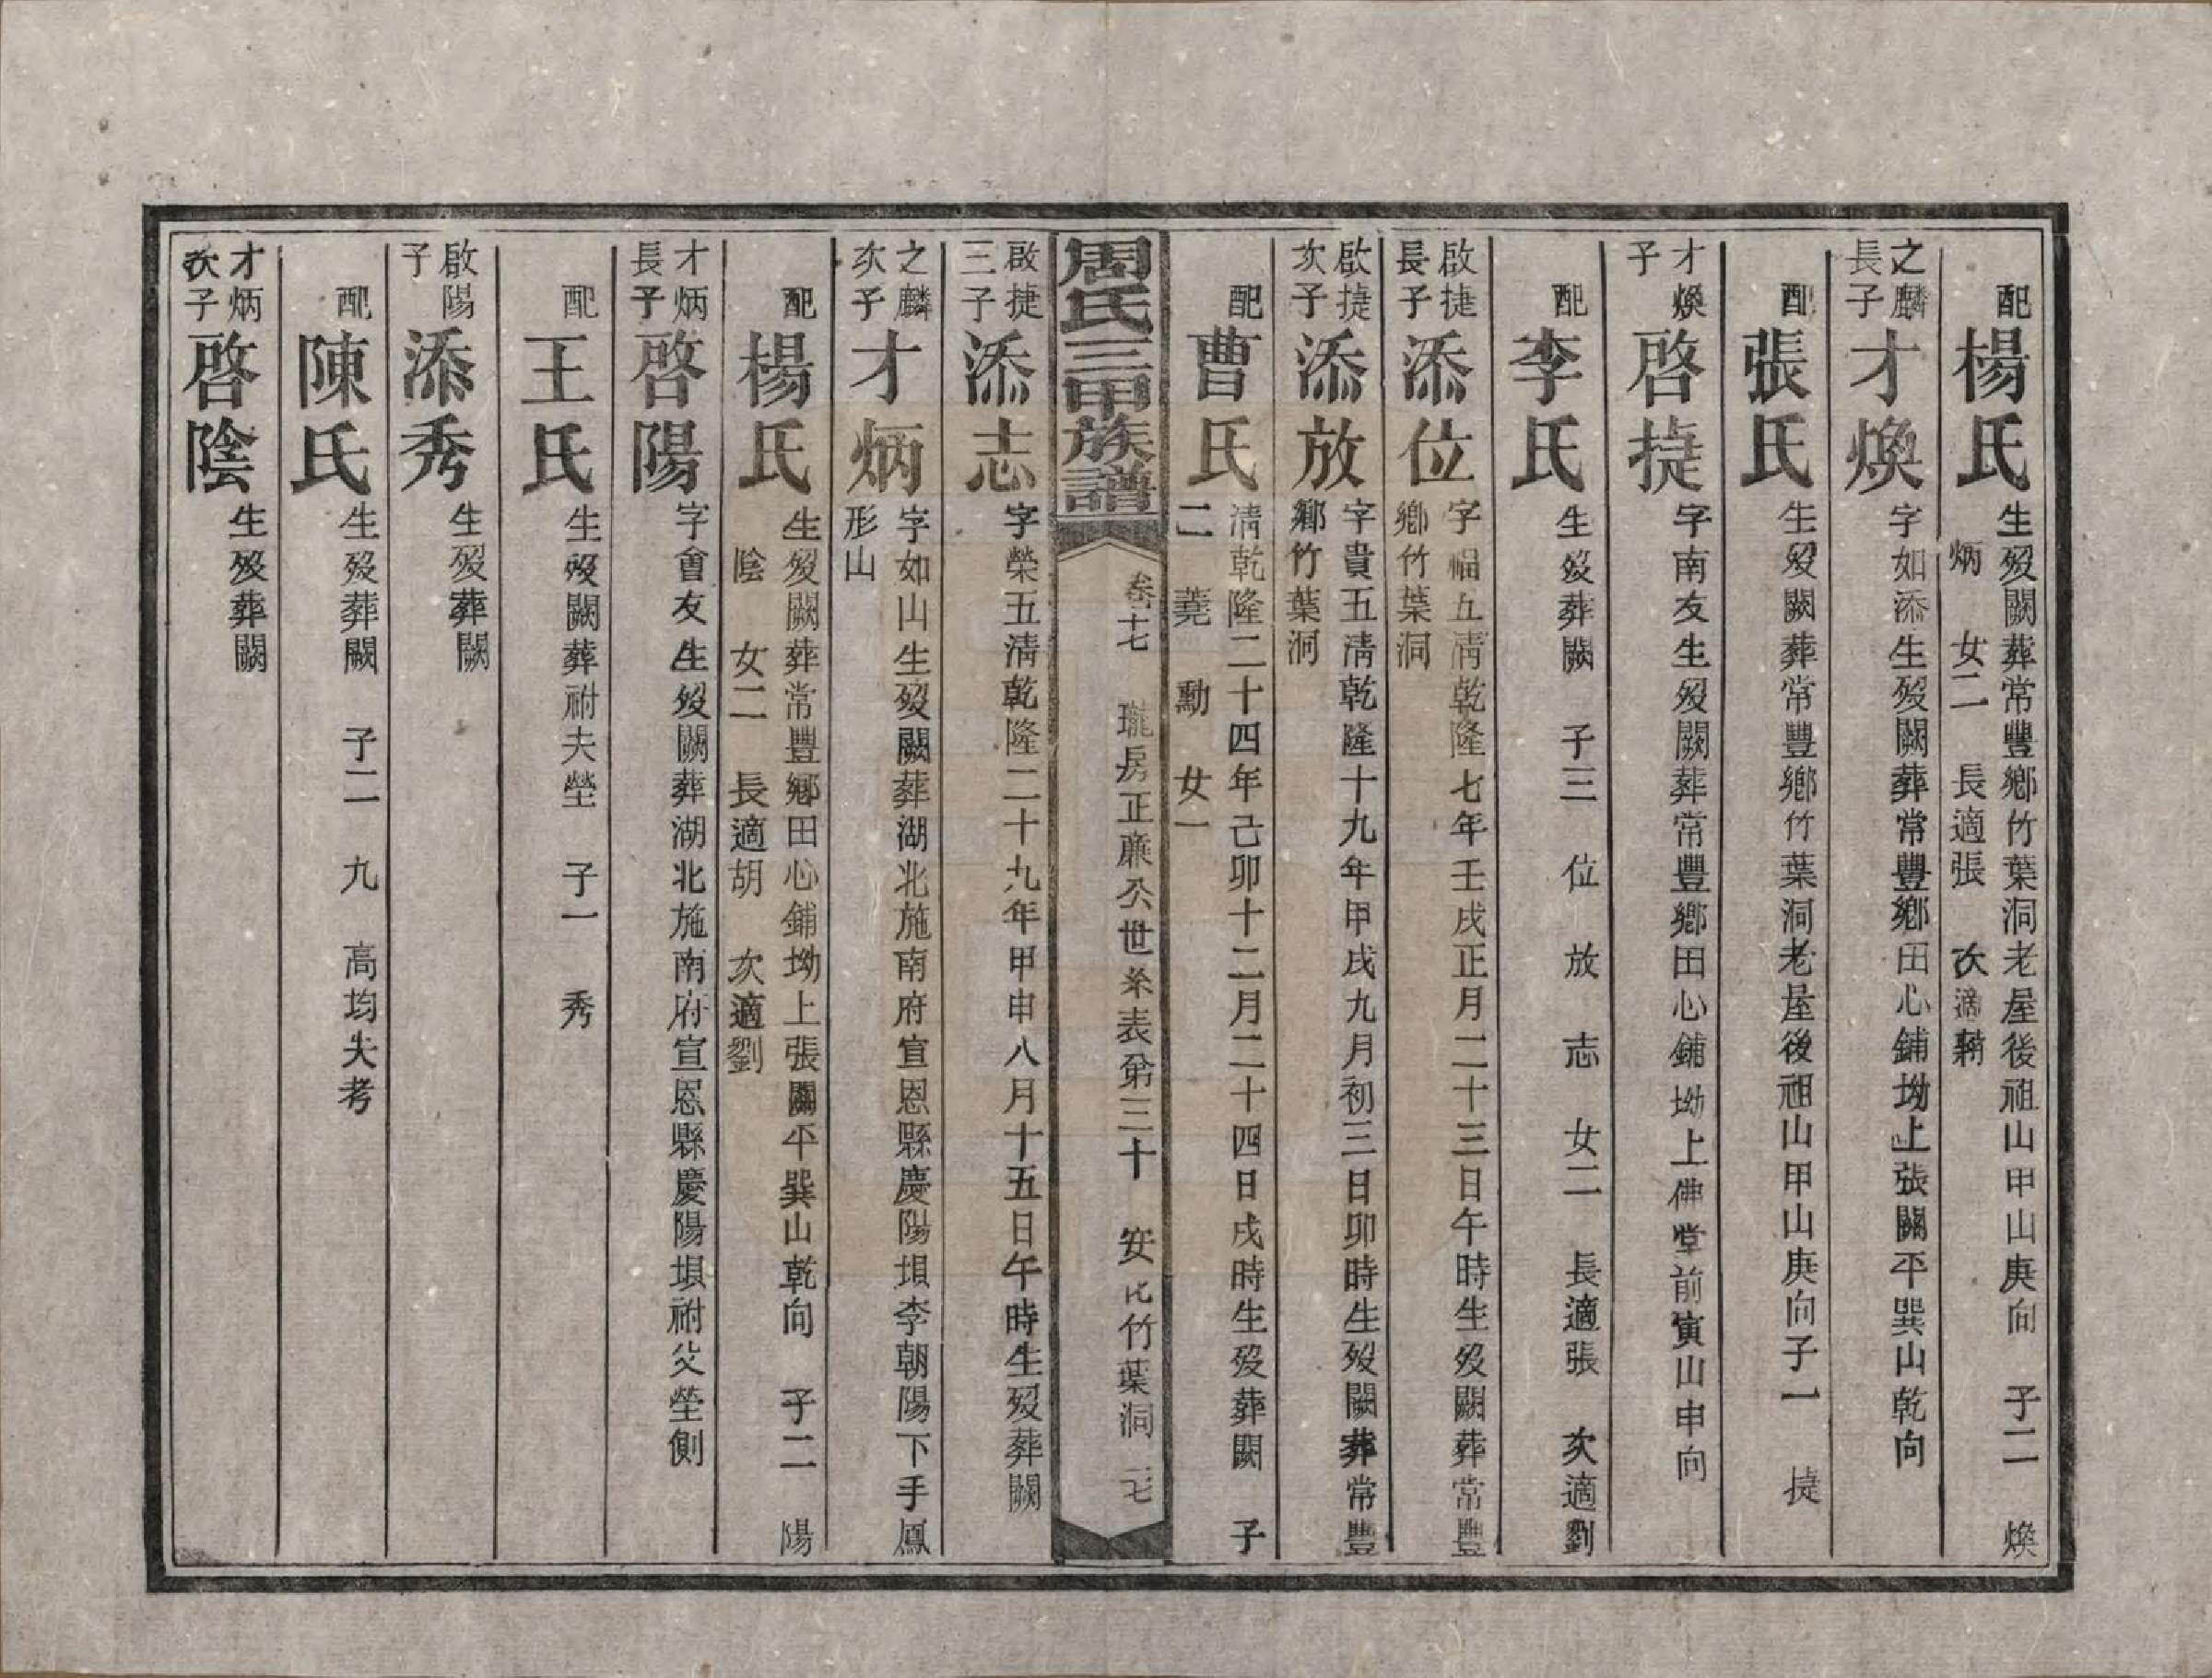 配楊氏生歿闕葬常豐鄉竹葉洞老屋後祖山甲山庚向 子二 煥
炳 女二 長適張 次適
之麟長子才煥字如添生歿闕葬常豐鄉田心鋪坳上張關平巽山乾向
配張氏生歿闕葬常豐鄉竹葉洞老屋後祖山甲山庚向子一 捷
才煥子啓捷字南友生歿闕葬常豐鄉田心鋪坳上佛堂前寅山申向
配李氏生歿葬闕 子三 位 放 志 女二 長適張 次適劉
啟捷長子添位字福五清乾隆七年壬戌正月二十三日午時生歿闕葬常豐
鄉竹葉洞
啟捷次子添放字貴五清乾隆十九年甲戌九月初三日卯時生歿闕葬常豐
鄉竹葉洞
配曹氏清乾隆二十四年己卯十二月二十四日戌時生歿葬闕 子
二 蕘 勳 女一
周氏三甲族譜 卷十七 瓏房正廉公世系表第三十 安化竹葉洞 二七
啟捷三子添志字榮五清乾隆二十九年甲申八月十五日午時生歿葬闕
之麟次子才炳字如山生歿闕葬湖北施南府宣恩縣慶陽垻李朝陽下手鳳
形山
配楊氏生歿闕葬常豐鄉田心鋪坳上張關平巽山乾向 子二 陽
陰 女二 長適胡 次適劉
才炳長子啓陽字會友生歿闕葬湖北施南府宣恩縣慶陽垻祔父塋側
配王氏生歿闕葬祔夫塋 子一 秀
啟陽子添秀生歿葬闕
配陳氏生歿葬闕 子二 九 高均失考
才炳次子啓陰生歿葬闕